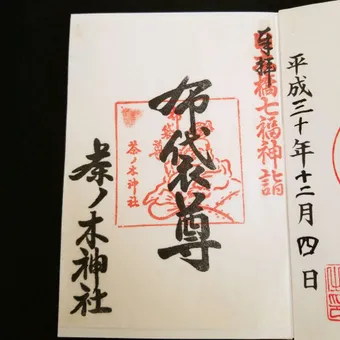 奉拝
日本橋七福神詣
布袋尊
布袋尊
茶ノ木神社
茶ノ木神社
平成三十年十二月四日